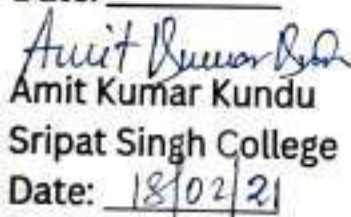 Date:
Amit Kumar
Amit Kumar Kundu
Sripat Singh College
Date: 18/02/21